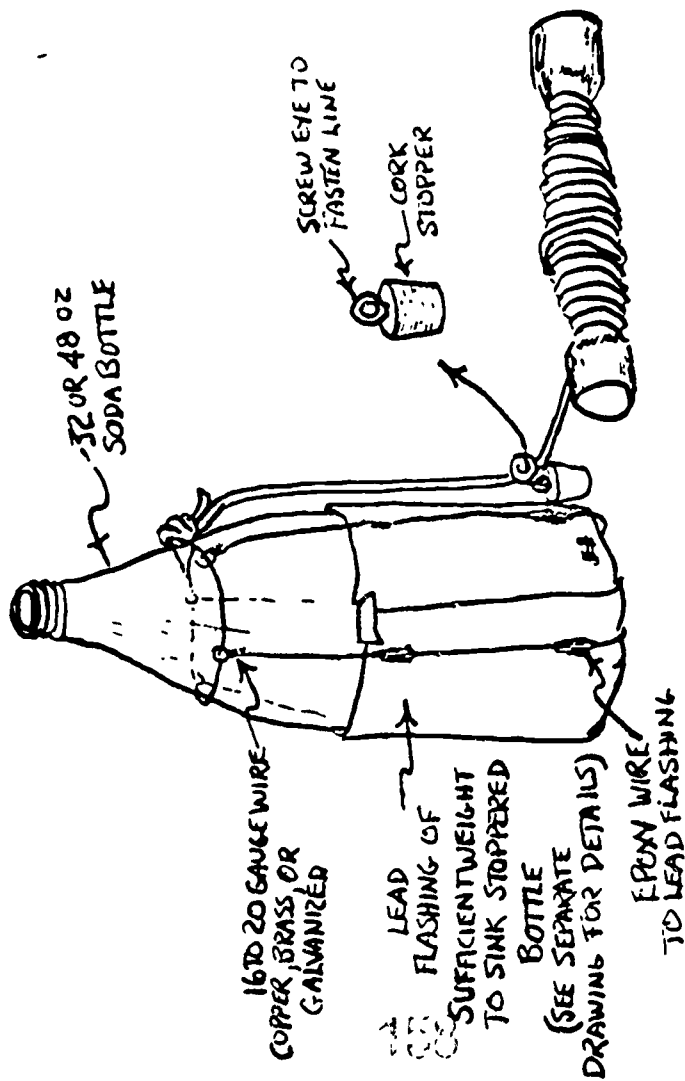 32 OR 48 OZ
SODA BOTTLE
SCREW EYE TO
FASTEN LINE
CORK
STOPPER
16 TO 20 GAUGE WIRE
COPPER, BRASS, OR
GALVANIZED
LEAD
FLASHING OF
SUFFICIENT WEIGHT
TO SINK STOPPERED
BOTTLE
(SEE SEPARATE
DRAWING FOR DETAILS)
EPOXY WIRE
TO LEAD FLASHING